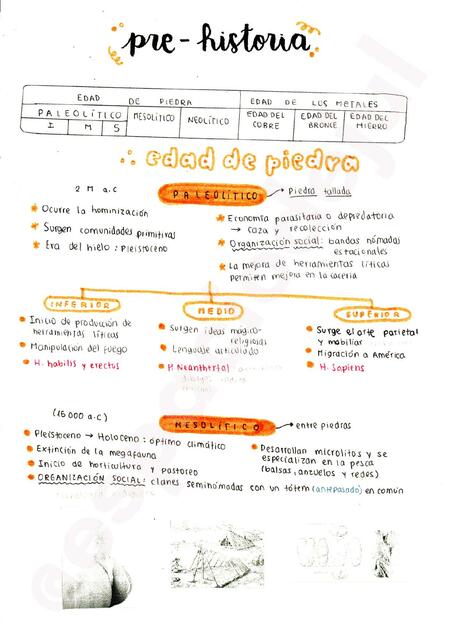 pre-historia
EDAD DE PIEDRA
EDAD DE LOS METALES
PALEOLÍTICO
MESOLÍTICO
NEOLÍTICO
EDAD DEL COBRE
EDAD DEL BRONCE
EDAD DEL HIERRO
I M S
EDAD DE PIEDRA
2 M a.c
PALEOLÍTICO → Piedra tallada
Ocurre la hominización
Surgen comunidades primitivas
Era del hielo: Pleistoceno
Economía parasitaria o depredatoria
→ caza y recolección
Organización social: bandas nómadas
estacionales
La mejora de herramientas líticas
permiten mejora en la cacería
INFERIOR
Inicio de producción de
herramientas líticas
Manipulación del fuego
H. habilis y erectus
MEDIO
Surgen ideas mágico-
religiosas
Lenguaje articulado
H. Neanthertal
SUPERIOR
Surge el arte parietal
y mobiliar
Migración a América
H. Sapiens
(15 000 a.c)
MESOLÍTICO → entre piedras
Pleistoceno → Holoceno: óptimo climático
Extinción de la megafauna
Inicio de horticultura y pastoreo
Desarrollan microlitos y se
especializan en la pesca
(balsas, anzuelos y redes)
ORGANIZACIÓN SOCIAL: clanes seminómadas con un tótem (antepasado) en común